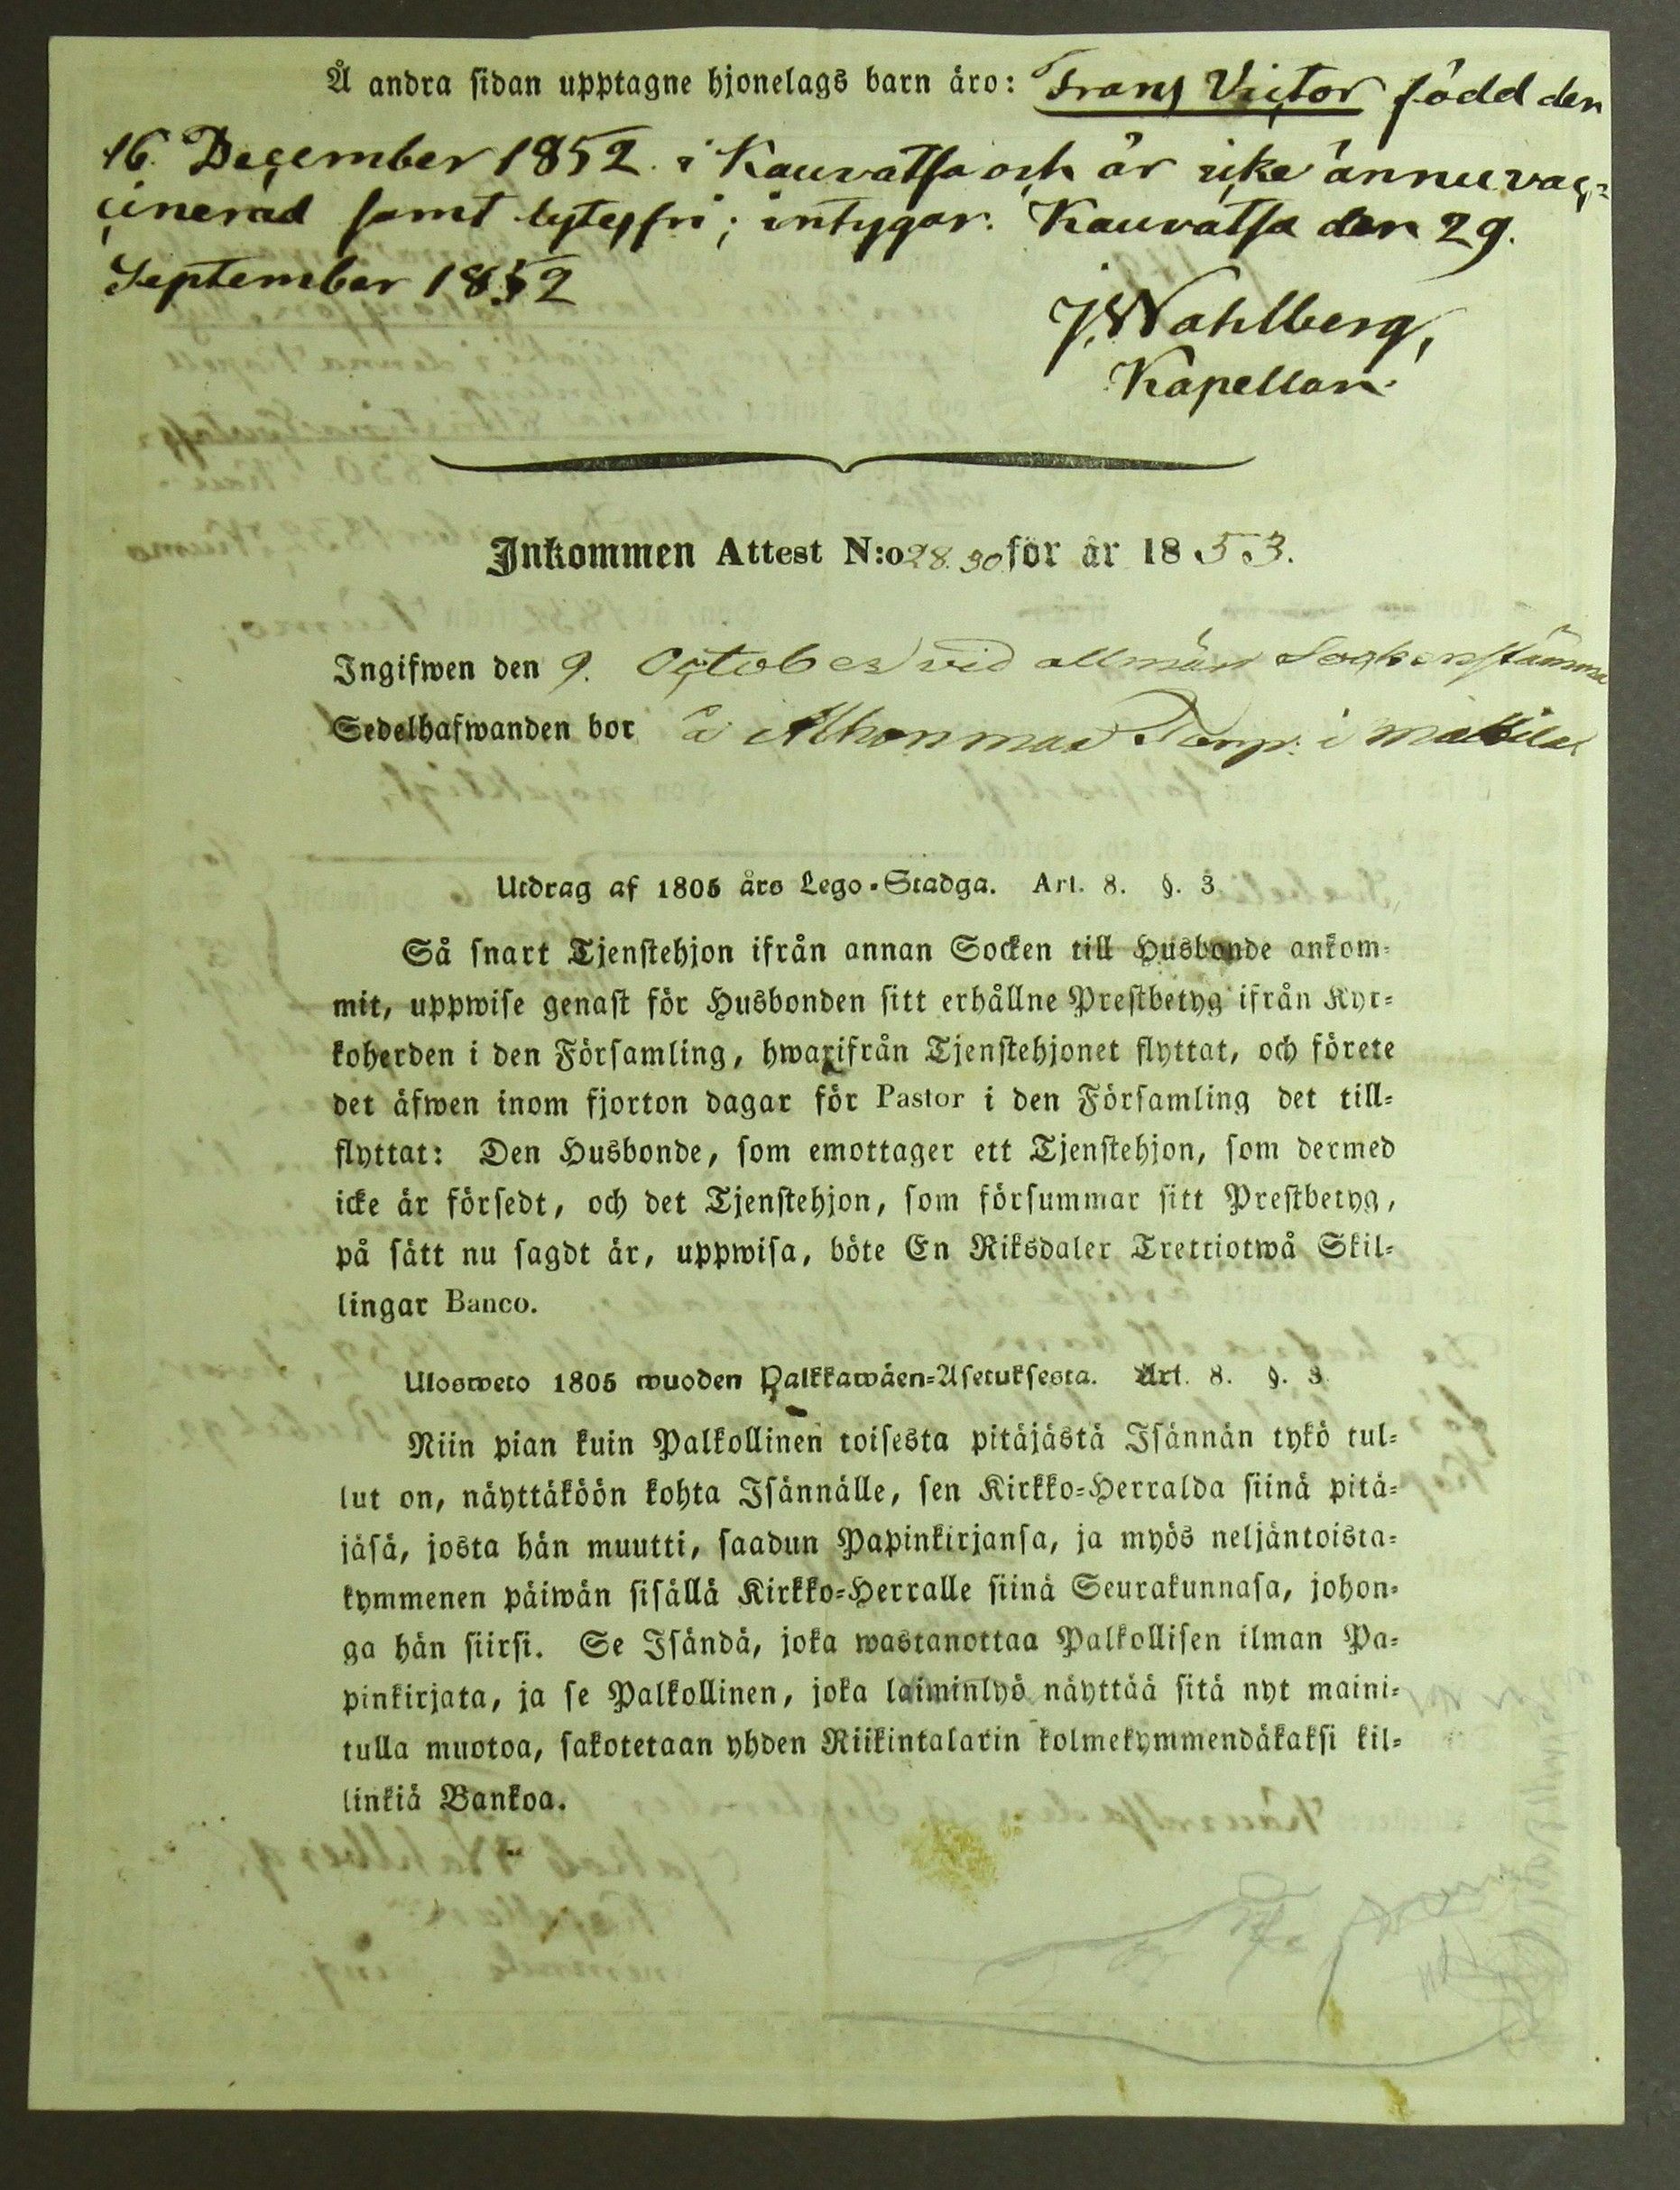 Å andra sidan upptagne hjonelags barn äro: Frans Victor född den
16. December 1852. i Kauvatsa och är icke ännu vac=
cinerad samt lytesfri; intygar. Kauvatsa den 29.
September 1852
J. Wahlberg,
Kapellan.
Inkommen Attest N:o 28. 30 för år 1853.
Ingifwen den 9. October vid allmän Sockenstämma
Sedelhafwanden bor å Torp i Mattila
Utdrag af 1805 års Lego-Stadga. Art. 8. §. 3
Så snart Tjenstehjon ifrån annan Socken till Husbonde ankom=
mit, uppwise genast för Husbonden sitt erhållne Prestbetyg ifrån Kyr=
koherden i den Församling, hwarifrån Tjenstehjonet flyttat, och förete
det äfwen inom fjorton dagar för Pastor i den Församling det till=
flyttat: Den Husbonde, som emottager ett Tjenstehjon, som dermed
icke är försedt, och det Tjenstehjon, som försummar sitt Prestbetyg,
på sätt nu sagdt är, uppwisa, böte En Riksdaler Trettiotwå Skil=
lingar Banco.
Ulosweto 1805 wuoden Palkkawäen=Asetuksesta. Art. 8. §. 3
Niin pian kuin Palkollinen toisesta pitäjästä Isännän tykö tul=
lut on, näyttäköön kohta Isännälle, sen Kirkko=Herralda siinä pitä=
jäsä, josta hän muutti, saadun Papinkirjansa, ja myös neljäntoista=
kymmenen päiwän sisällä Kirkko=Herralle siinä Seurakunnasa, johon=
ga hän siirsi. Se Isändä, joka wastanottaa Palkollisen ilman Pa=
pinkirjata, ja se Palkollinen, joka laiminlyö näyttää sitä nyt maini=
tulla muotoa, sakotetaan yhden Riikintalarin kolmekymmendäkaksi kil=
linkiä Bankoa.